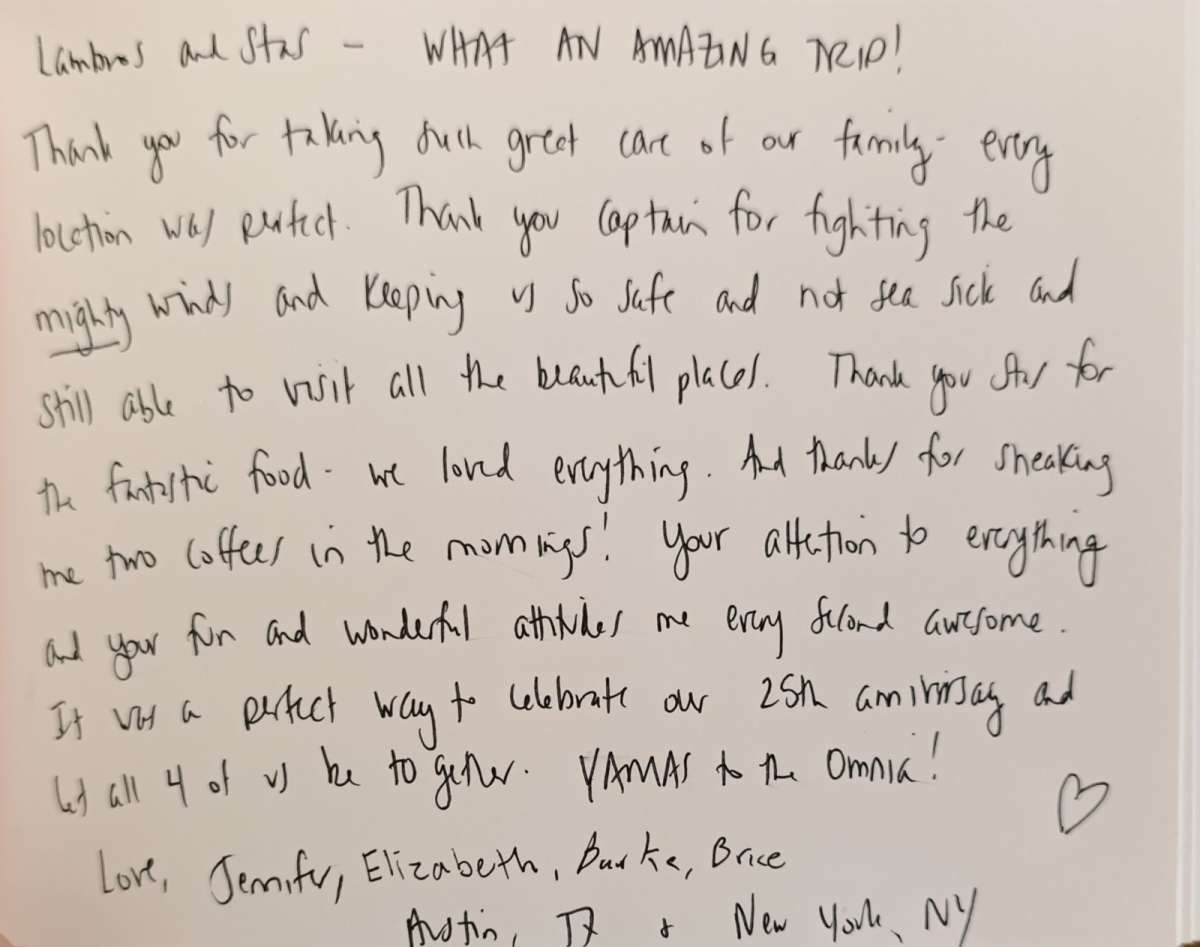 Lambros and Stas - WHAT AN AMAZING TRIP!
Thank you for taking such great care of our family - every
location was perfect. Thank you Captain for fighting the
mighty winds and keeping us so safe and not sea sick and
still able to visit all the beautiful places. Thank you Stas for
the fantastic food - we loved everything. And thanks for sneaking
me two coffees in the mornings! Your attention to everything
and your fun and wonderful attitudes me every second awesome.
It was a perfect way to celebrate our 25th and
let all 4 of us be together. YAMAS to the Omnia!
Love, Jennifer, Elizabeth, Burke, Brice
Austin, TX + New York, NY